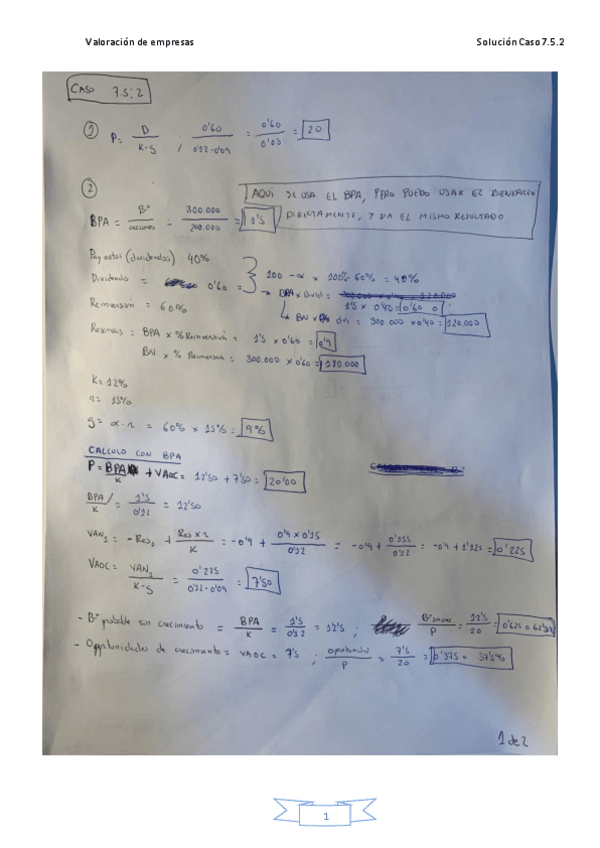 Valoración de empresas Solución Caso 7.5.2
CASO 7.5.2
1) P = D / K-g ; 0'60 / 0'12-0'09 = 0'60 / 0'03 = 20
2) AQUÍ SE USA EL BPA, PERO PUEDO USAR EL BENEFICIO
DIRECTAMENTE, Y DA EL MISMO RESULTADO
BPA = Bº / acciones = 300.000 / 200.000 = 1'5
Pay outos (dividendos) 40%
Dividendos = 0'60 =
100 - α = 100% 60% = 40%
→ BPA x Divid =
1'5 x 0'40 = 0'60
BN x % div = 300.000 x 0'40 = 120.000
Reinversión = 60%
Reservas = BPA x % Reinversión = 1'5 x 0'60 = 0'9
BN x % Reinversión = 300.000 x 0'60 = 180.000
K = 12%
r = 15%
g = α · r = 60% x 15% = 9%
CALCULO CON BPA
P = BPA / K + VAOC = 12'50 + 7'50 = 20'00
BPA / K = 1'5 / 0'12 = 12'50
VAN1 = - Res1 + Res x r / K = -0'9 + 0'9 x 0'15 / 0'12 = -0'9 + 0'135 / 0'12 = -0'9 + 1'125 = 0'225
VAOC = VAN1 / K-g = 0'225 / 0'12-0'09 = 7'50
- Bº probable sin crecimiento = BPA / K = 1'5 / 0'12 = 12'5 ; / P = 12'5 / 20 = 0'625 o 62'5%
- Oportunidades de crecimiento = VAOC = 7'5 ; / P = 7'5 / 20 = 0'375 o 37'5%
1 de 2
1